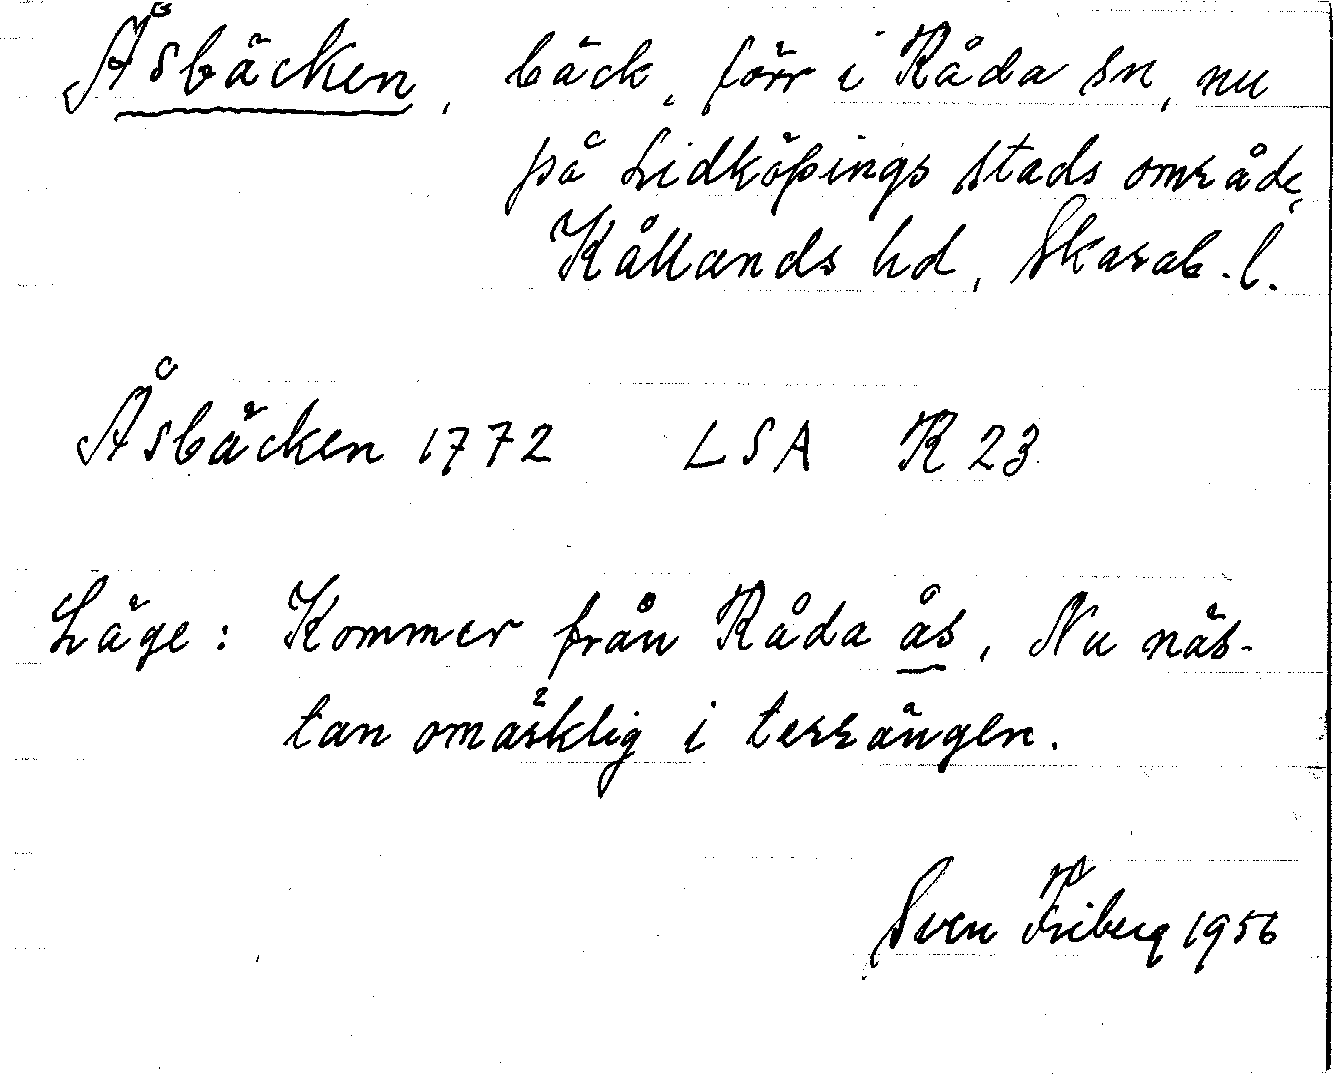 Åsbäcken, bäck, förr i Råda sn, nu
på Lidköpings stads område,
Kållands hd, Skarab. l.
Åsbäcken 1772 LSA R 23
Läge: Kommer från Råda ås. Nu näs-
tan omärklig i terrängen.
Sven Friberg 1956